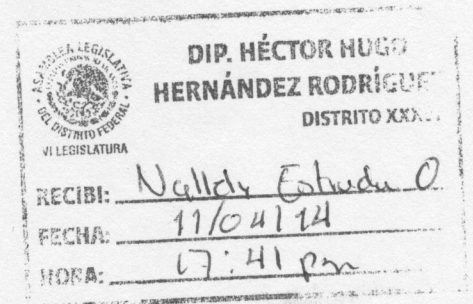 ASAMBLEA LEGISLATIVA
DEL DISTRITO FEDERAL
VI LEGISLATURA
DIP. HÉCTOR HUGO
HERNÁNDEZ RODRÍGUE
DISTRITO XXX
RECIBI: Nallely Estrada O
FECHA: 11/04/14
HORA: 17:41 pm